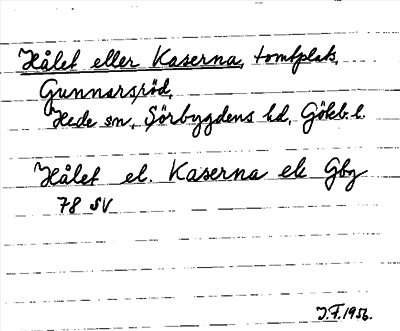 Hålet eller Kaserna, tomtplats,
Gunnarsröd,
Hede sn, Sörbygdens hd, Göteb. l.
Hålet el. Kaserna ek Gbg
78 SV
J.F. 1956.